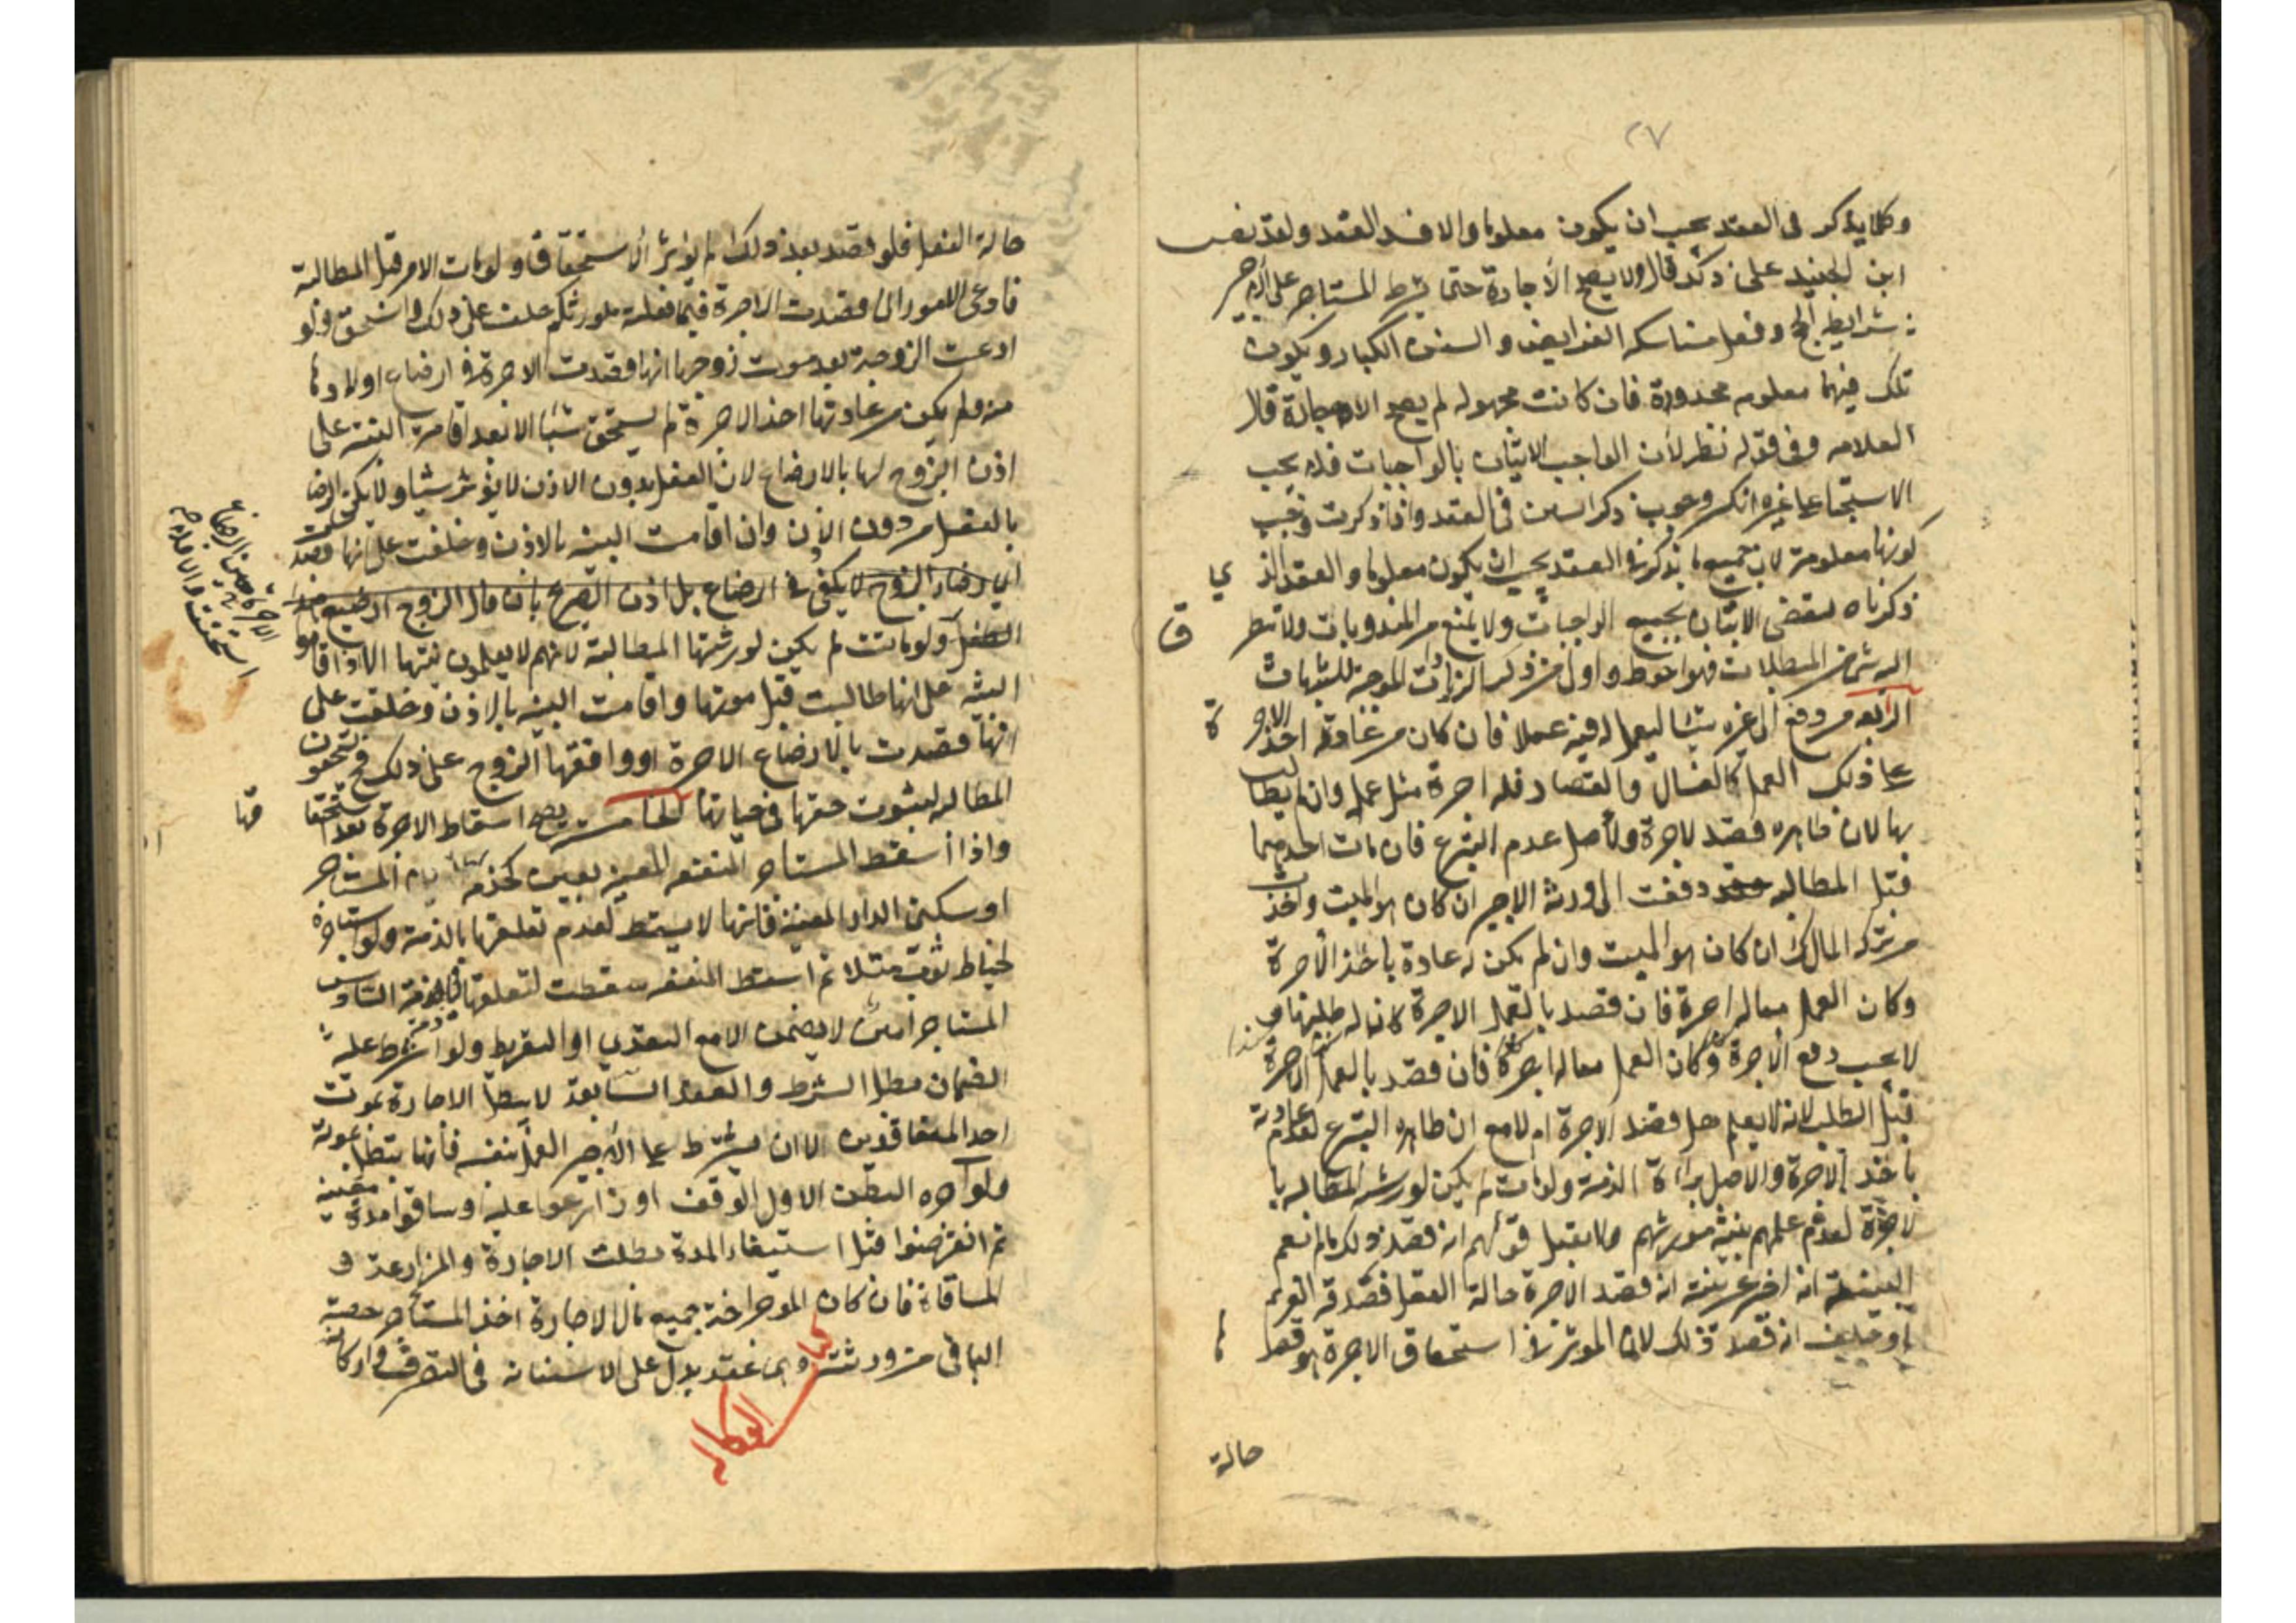 ٢٧
وكلما يذكر فى العقد يجب ان يكون معلوما والا فسد العقد ولقد نص
ابن الجنيد على ذلك قال ولا يصح الاجارة حتى يشرط المستاجر على الاجير
شرايط الحج وفعل مناسكه الفرايض والسنن الكبار ويكون
تلك فيهما معلومه محدودة فان كانت مجهوله لم يصح الاجارة قال
العلامه وفى قوله نظر لأن الواجب الاتيان بالواجبات فلا يجب
الاستيجار على غيره انكر وجوب ذكر السنن فى العقد واذا ذكرت وجب
كونها معلومة لان جميع ما يذكر فى العقد يجب ان يكون معلوما والعقد الذي
ذكرناه يقتضى الاتيان بجميع الواجبات ولا يمنع من المندوبات ولا تطرق
اليه شئ من المبطلات فهو احوط واولى من ذكر الزيادات الموجبة للشبهات
الرابعه من دفع الى غيره شيئا ليعمل له فيه عملا فان كان من عادته اخذ الاجرة
على ذلك العمل كالغسال والقصار فله اجرة مثل عمله وان لم يطالب
بها لان ظاهره قصد الاجرة والأصل عدم التبرع فان مات احدهما
قبل المطالبه دفعت الى ورثة الاجير ان كان هو الميت واخذت
من تركه المالك ان كان هو الميت وان لم يكن له عادة باخذ الأجرة
وكان العمل مما له اجرة فان قصد بالعمل الاجرة كان له طلبها و
لا يجب دفع الأجرة وكان العمل مما له اجرة فان قصد بالعمل الاجرة
قبل الطلب لانه لا يعلم هل قصد الاجرة ام لا مع ان ظاهره التبرع لعدم عادته
باخذ الاجرة والاصل براءة الذمة ولو مات لم يكن لورثته المطالبه با
لاجرة لعدم علمهم بنية مورثهم ولا يقبل قولهم انه قصد ذلك ما لم تقم
البينة انه اخبر عن نيته انه قصد الاجرة حالة الفعل فصدقه الغريم
او حلف انه قصد ذلك لان المؤثر فى استحقاق الاجرة هو قصدها
حالة
حالة الفعل فلو قصد بعد ذلك لم يؤثر الاستحقاق ولو مات الامر قبل المطالبة
فادعى المأمور انى قصدت الاجرة فيما فعلته لمورثكم حلف على ذلك واستحق ولو
ادعت الزوجة بعد موت زوجها انها قصدت الاجرة فى ارضاع اولادها
منه ولم يكن من عادتها اخذ الاجرة لم يستحق شيئا الا بعد اقامة البينة على
اذن الزوج لها بالارضاع لان الفعل بدون الاذن لا يؤثر شيئا ولا يكفى الرضا
بالفعل من دون الاذن وان اقامت البينه بالاذن وحلفت على انها قصدت
الاجرة حين الرضاع
استحقت والا فلا صح
ان رضاء الزوج لا يكفى فى الرضاع بل اذن الصريح بان قال الزوج ارضعى هذا
الطفل ولو ماتت لم يكن لورثتها المطالبة لانهم لا يعلمون نيتها الا اذا اقاموا
البينه على انها طالبت قبل موتها واقامت البينه بالاذن وحلفت على
انها قصدت بالارضاع الاجرة او وافقها الزوج على ذلك فح يستحقون
المطالبه لثبوت حقها فى حياتها الخامسة يصح اسقاط الاجرة بعد استحقاقها
واذا اسقط المستاجر المنفعه المعينه بعين كخدمة المستاجر
او سكنى الدار المعينة فانها لا يسقط لعدم تعلقها بالذمة ولو استاجره
لخياط ثوب مثلا ثم اسقط المنفعه سقطت لتعلقها بالذمة السادس
المستاجر امين لا يضمن الا مع التعدي او التفريط ولو شرط عليه
الضمان بطل الشرط والعقد السابعة لا يبطل الاجارة بموت
احد المتعاقدين الا ان يشرط على الاجير العمل بنفسه فانها تبطل بموته
ولو آجره البطن الاول الوقف او زارعوا عليه وساقوا مدة معينه
ثم انقرضوا قبل استيفاء المدة بطلت الاجارة والمزارعة و
المساقاة فان كان الموجر اخذ جميع مال الاجارة اخذ المستاجر حصة
الباقى من ورثته كتاب الوكالة وهى عقد يدل على الاستنابه فى التصرف واركانه